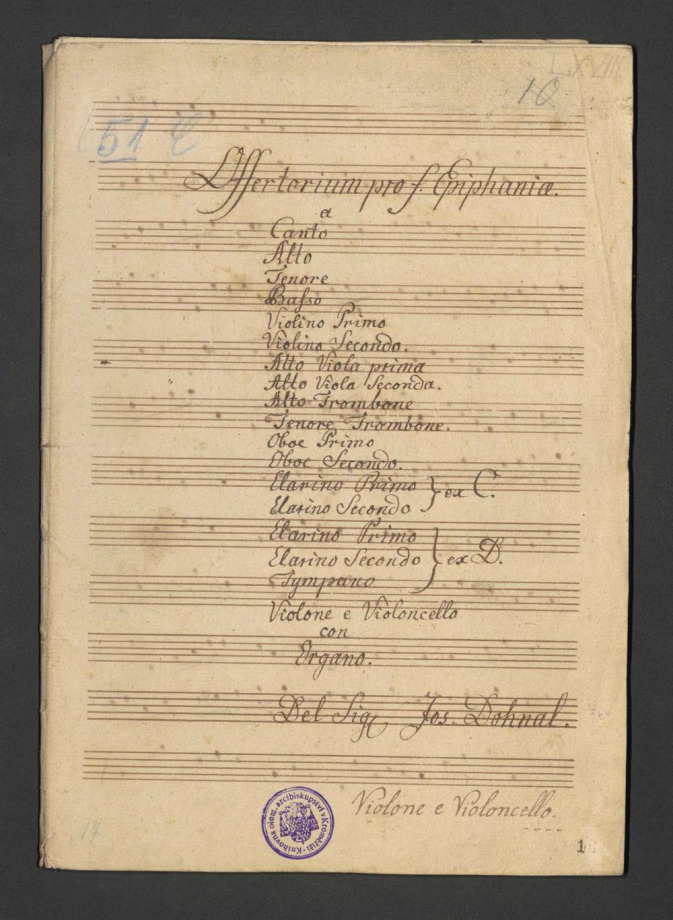 LXVIII
10
51
Offertorium pro f. Epiphaniæ.
a
Canto
Alto
Tenore
Basso
Violino Primo
Violino Secondo.
Alto Viola prima
Alto Viola Seconda.
Alto Trombone
Tenore Trombone.
Oboe Primo
Oboe Secondo.
Clarino Primo
Clarino Secondo } ex C.
Clarino Primo
Clarino Secondo } ex D.
Tympano
Violone e Violoncello
con
Organo.
Del Sig Jos. Dohnal.
Violone e Violoncello.
Knihovna olom. arcibiskupství v Kroměříži
14
1